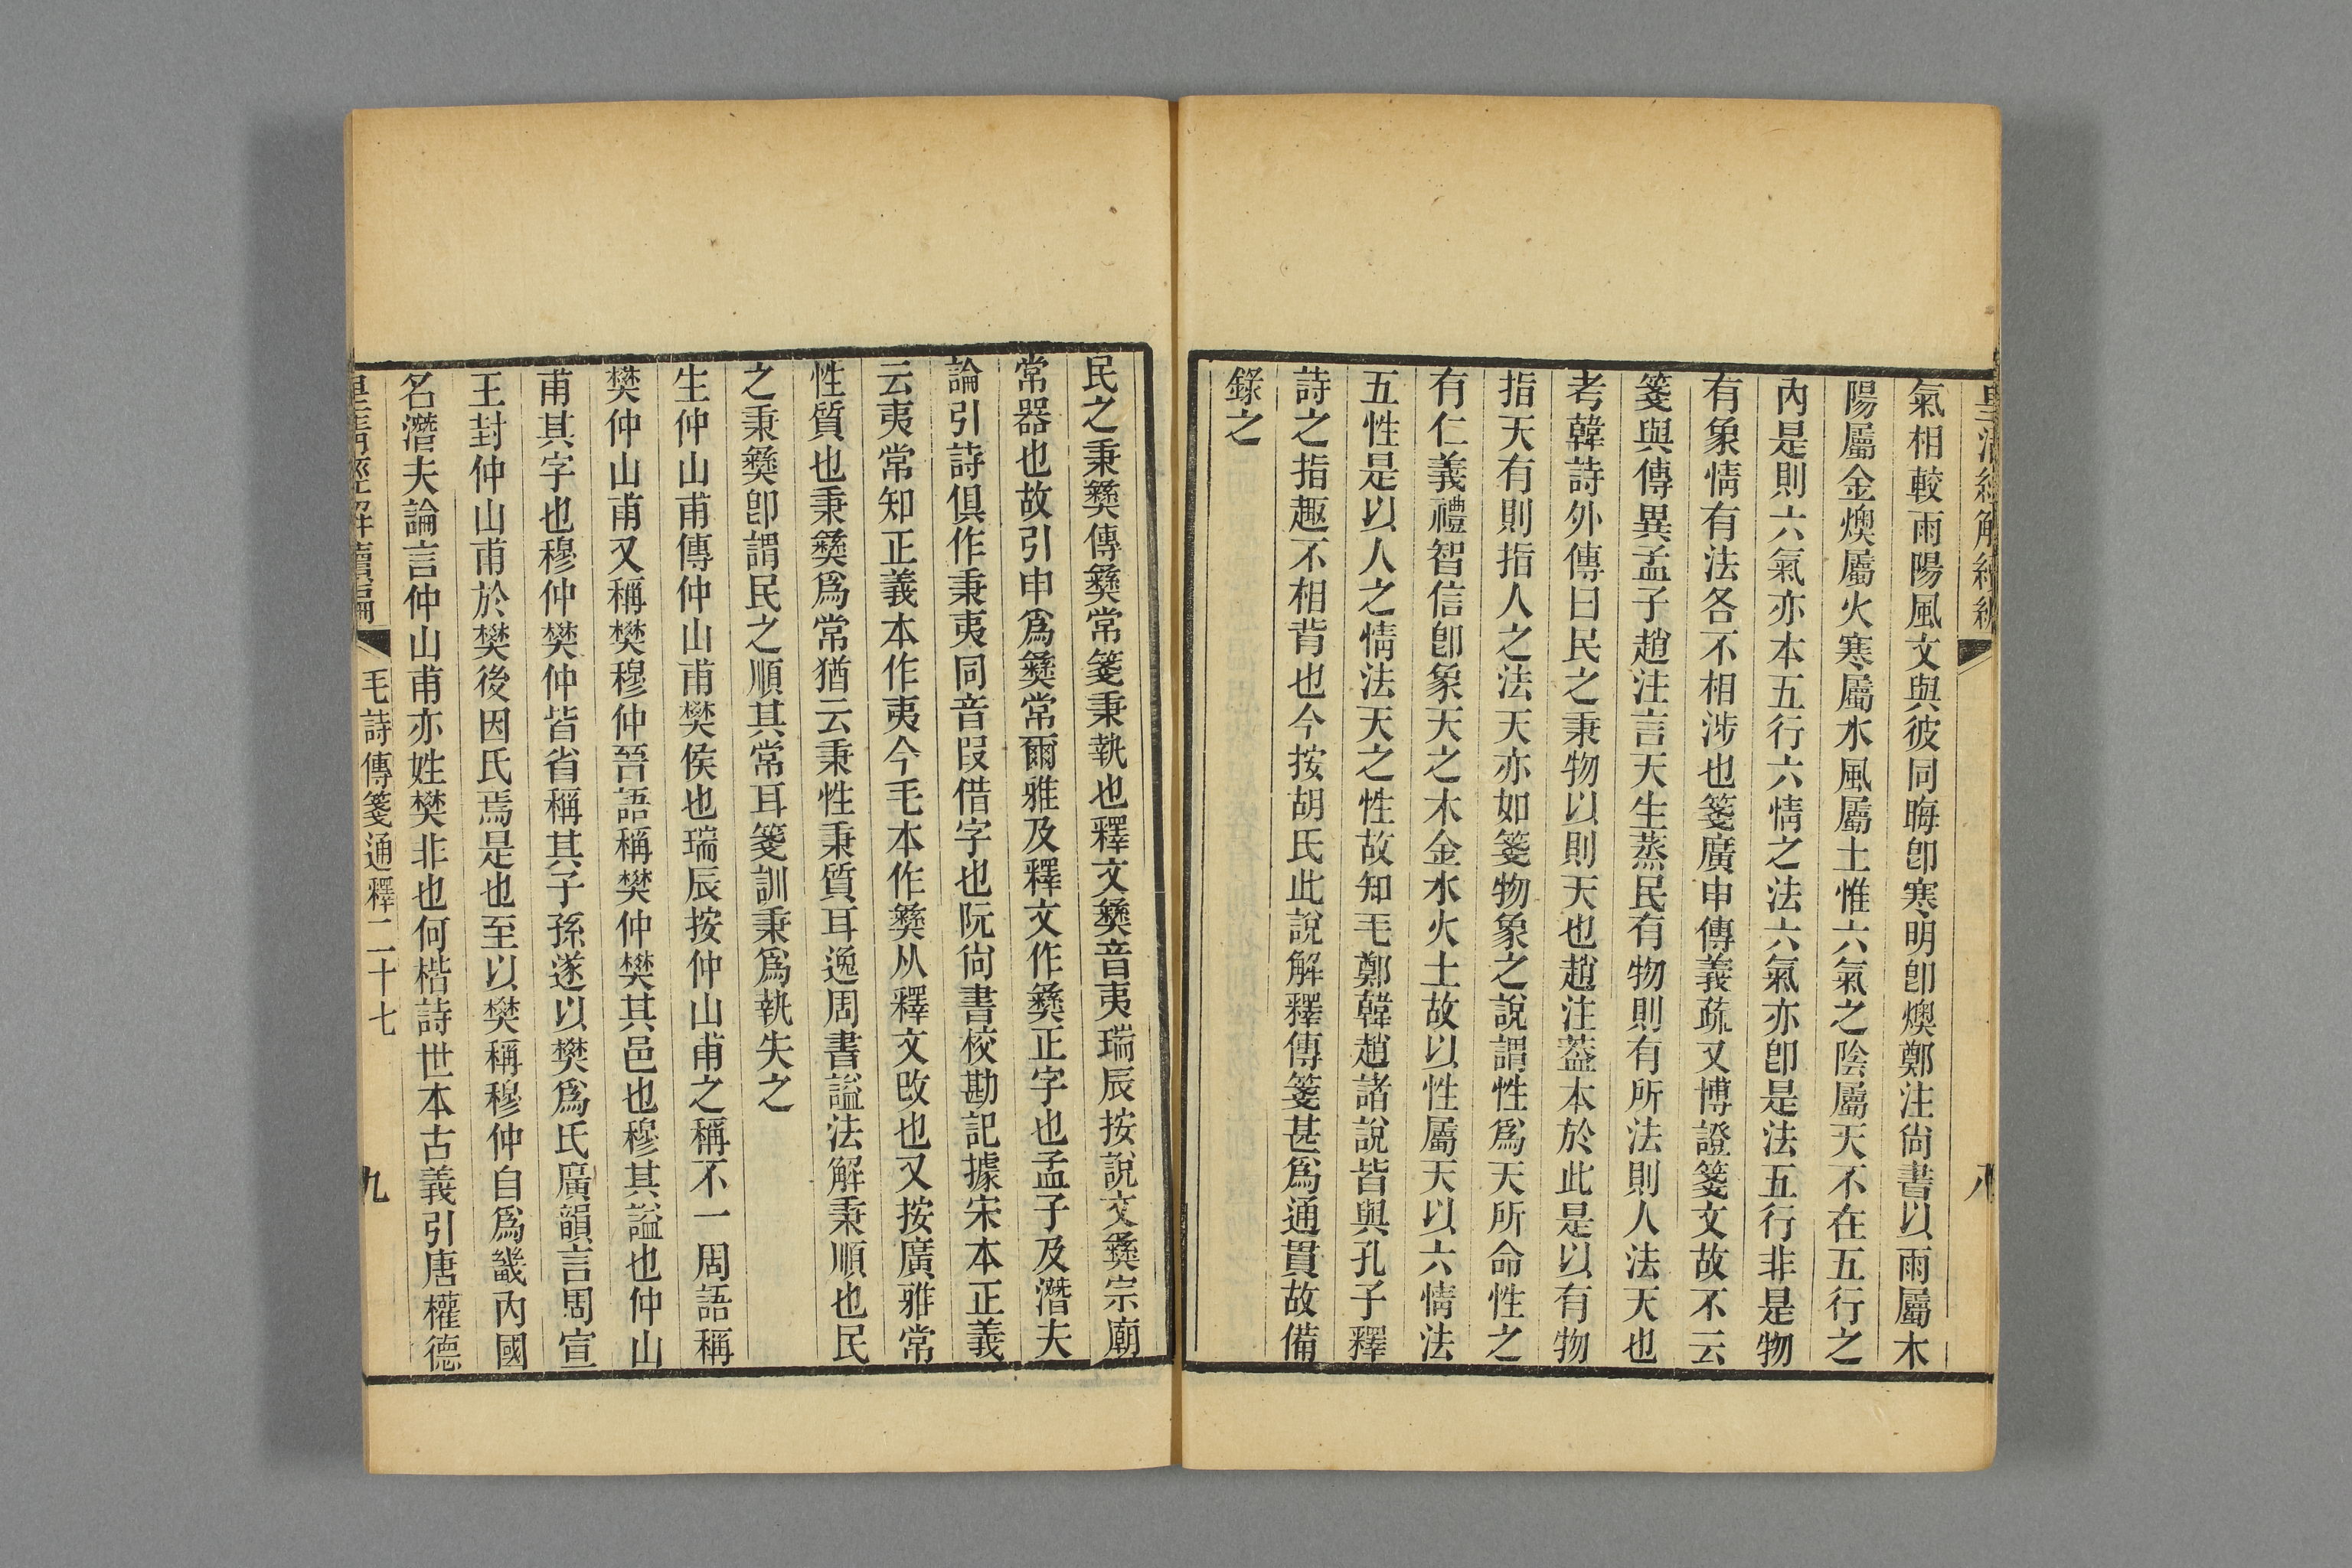 皇清經解續編
八
氣相較雨陽風文與彼同晦卽寒明卽燠鄭注尙書以雨屬木
陽屬金燠屬火寒屬水風屬土惟六氣之陰屬天不在五行之
內是則六氣亦本五行六情之法六氣亦卽是法五行非是物
有象情有法各不相涉也箋廣申傳義疏又博證箋文故不云
箋與傳異孟子趙注言天生蒸民有物則有所法則人法天也
考韓詩外傳曰民之秉物以則天也趙注葢本於此是以有物
指天有則指人之法天亦如箋物象之說謂性爲天所命性之
有仁義禮智信卽象天之木金水火土故以性屬天以六情法
五性是以人之情法天之性故知毛鄭韓趙諸說皆與孔子釋
詩之指趣不相背也今按胡氏此說解釋傳箋甚爲通貫故備
錄之
民之秉彝傳彝常箋秉執也釋文彝音夷瑞辰按說文彝宗廟
常器也故引申爲彝常爾雅及釋文作彝正字也孟子及潛夫
論引詩俱作秉夷同音叚借字也阮尙書校勘記據宋本正義
云夷常知正義本作夷今毛本作彝从釋文改也又按廣雅常
性質也秉彝爲常猶云秉性秉質耳逸周書諡法解秉順也民
之秉彝卽謂民之順其常耳箋訓秉爲執失之
生仲山甫傳仲山甫樊侯也瑞辰按仲山甫之稱不一周語稱
樊仲山甫又稱樊穆仲晉語稱樊仲樊其邑也穆其諡也仲山
甫其字也穆仲樊仲皆省稱其子孫遂以樊爲氏廣韻言周宣
王封仲山甫於樊後因氏焉是也至以樊稱穆仲自爲畿內國
名潛夫論言仲山甫亦姓樊非也何楷詩世本古義引唐權德
皇淸經解續編
毛詩傳箋通釋二十七
九